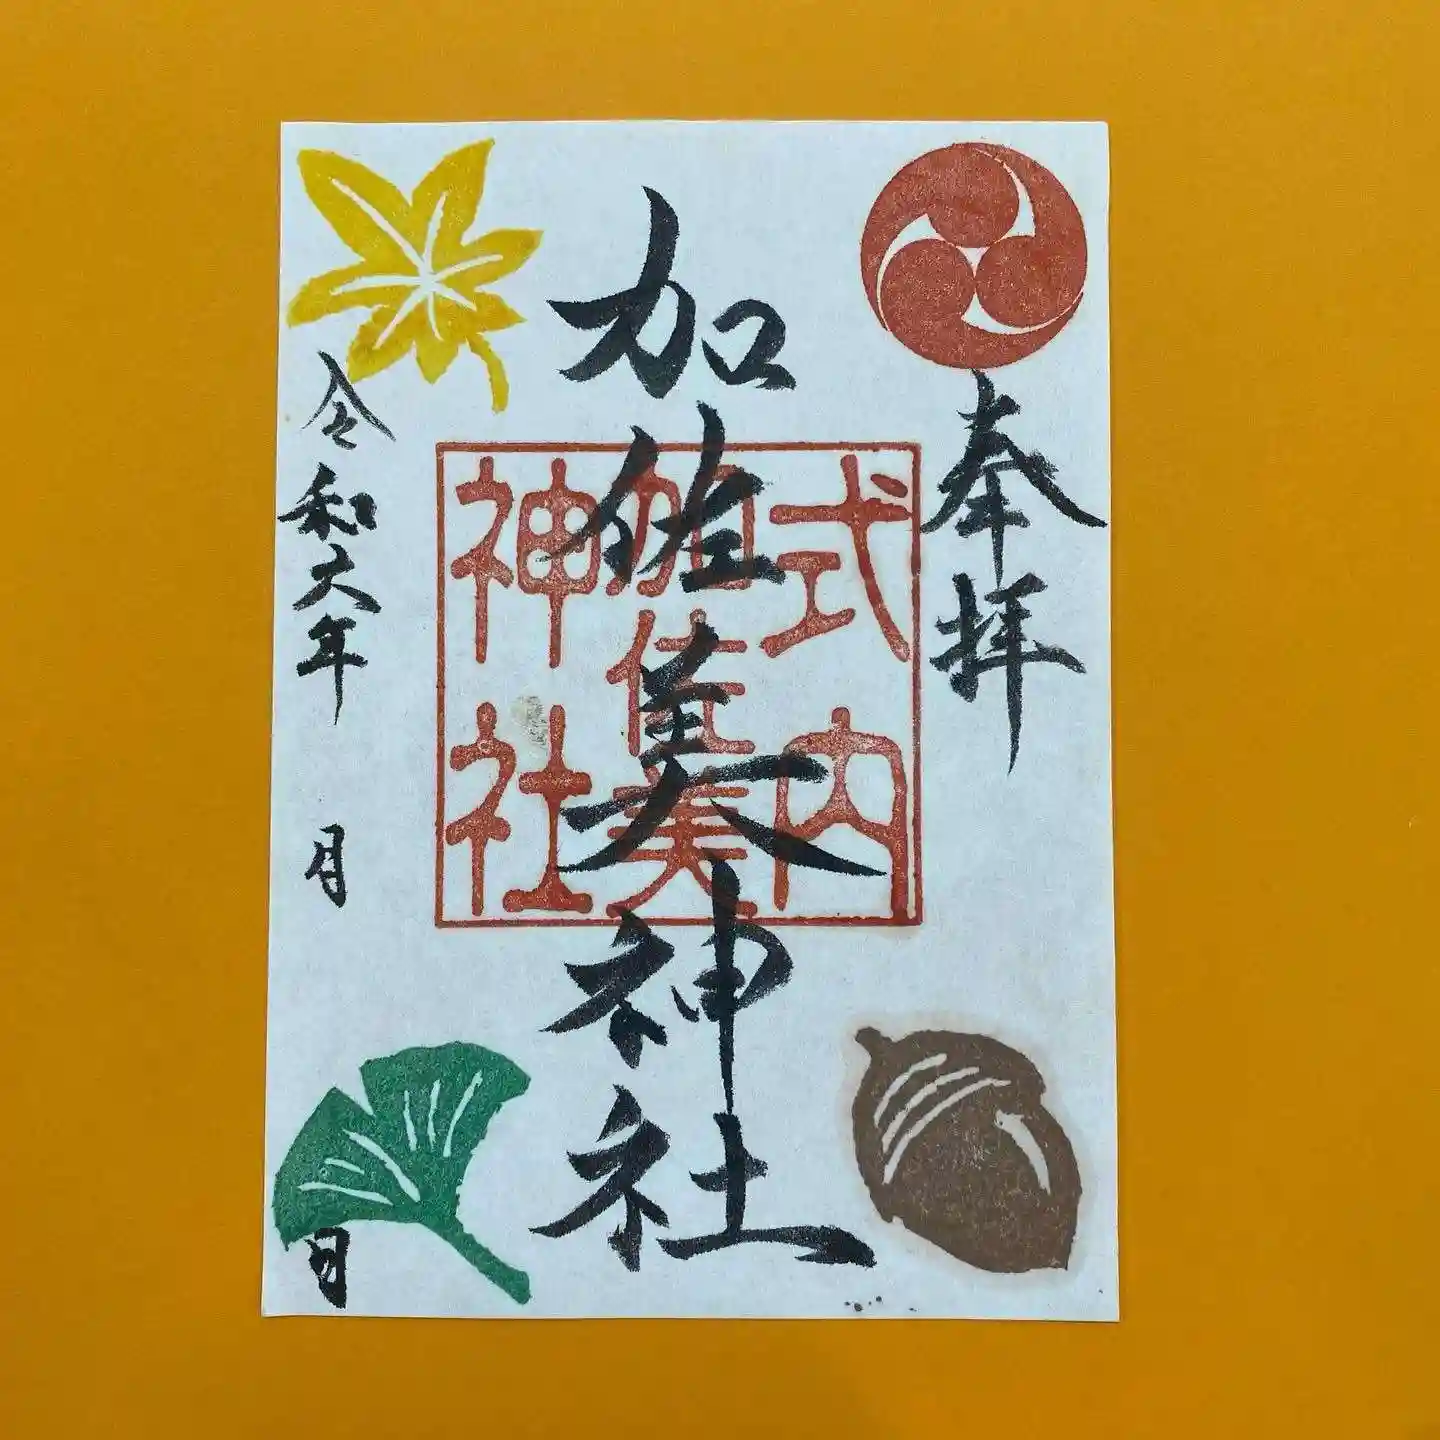 奉拝
式内
加佐美
神社
加佐美神社
令和六年 月 日